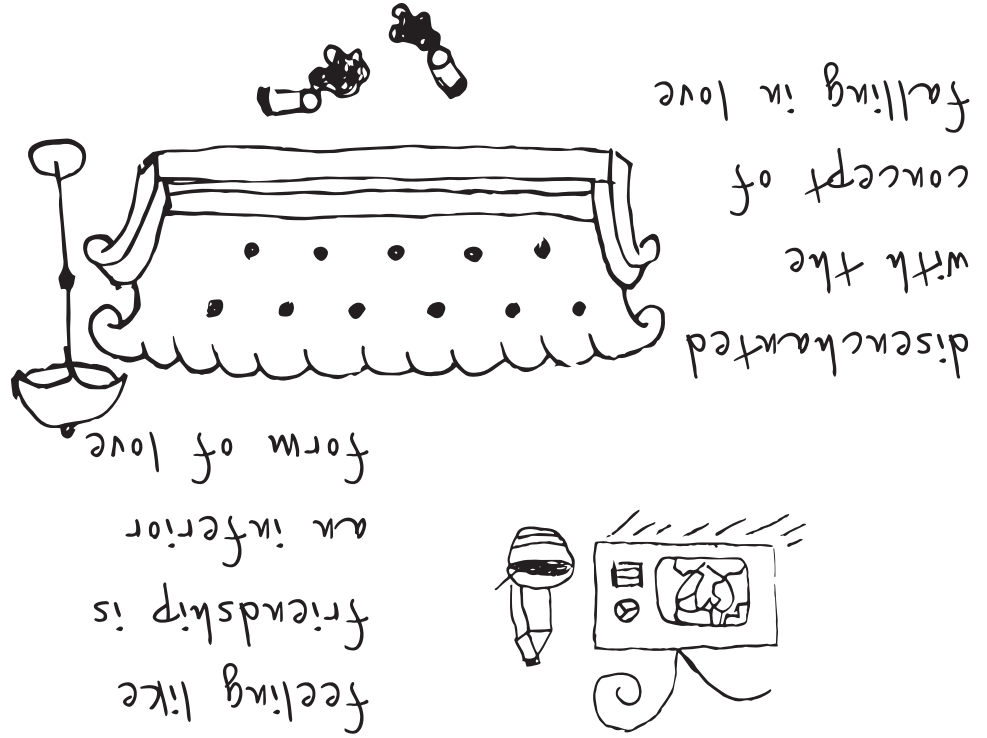 feeling like
friendship is
an inferior
form of love
disenchanted
with the
concept of
falling in love